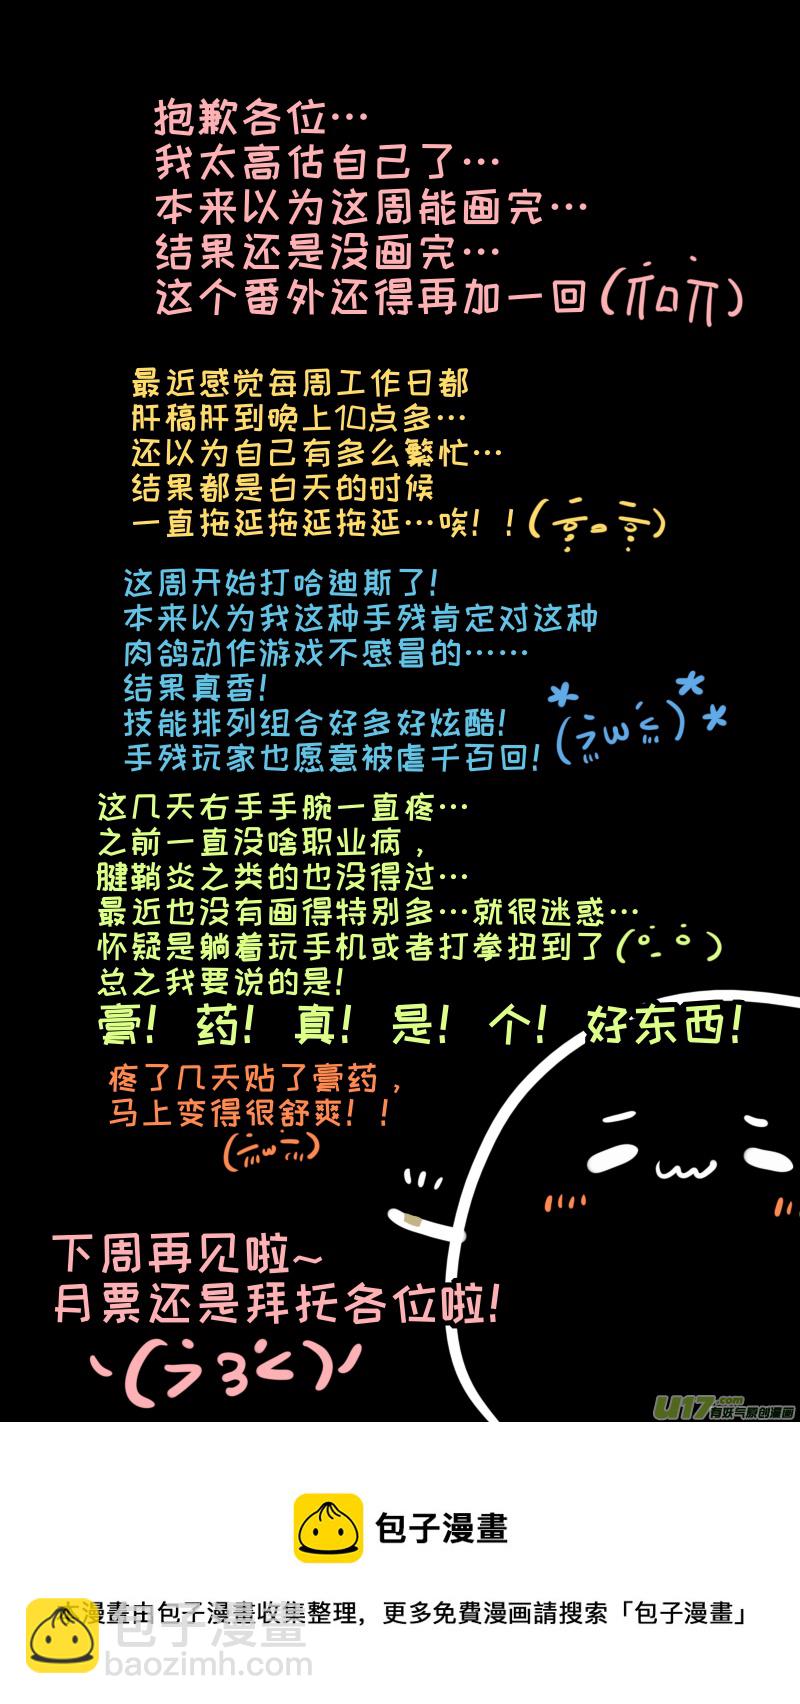 抱歉各位…
我太高估自己了…
本来以为这周能画完…
结果还是没画完…
这个番外还得再加一回
最近感觉每周工作日都
肝稿肝到晚上10点多…
还以为自己有多么繁忙…
结果都是白天的时候
一直拖延拖延拖延…唉！！
这周开始打哈迪斯了!
本来以为我这种手残肯定对这种
肉鸽动作游戏不感冒的……
结果真香!
技能排列组合好多好炫酷!
手残玩家也愿意被虐千百回!
这几天右手手腕一直疼…
之前一直没啥职业病，
腱鞘炎之类的也没得过…
最近也没有画得特别多…就很迷惑…
怀疑是躺着玩手机或者打拳扭到了
总之我要说的是!
膏！药！真！是！个！好东西！
疼了几天贴了膏药，
马上变得很舒爽！！
下周再见啦~
月票还是拜托各位啦!
U17.com
有妖气原创漫画
包子漫畫
本漫畫由包子漫畫收集整理，更多免費漫画請搜索「包子漫畫」
包子漫畫
baozimh.com